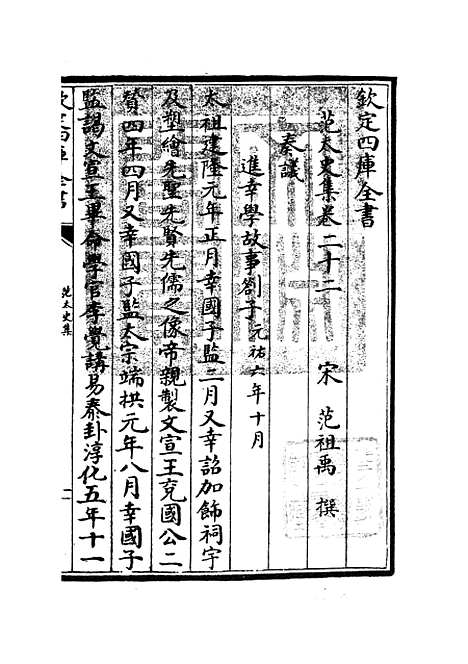 欽定四庫全書
范太史集卷二十二
宋 范祖禹 撰
奏議
進幸學故事劄子元祐六年十月
太祖建隆元年正月幸國子監二月又幸詔加飾祠宇
及塑繪先聖先賢先儒之像帝親製文宣王兗國公二
贊四年四月又幸國子監太宗端拱元年八月幸國子
監謁文宣王畢命學官李覺講易泰卦淳化五年十一
欽定四庫全書
范太史集
一